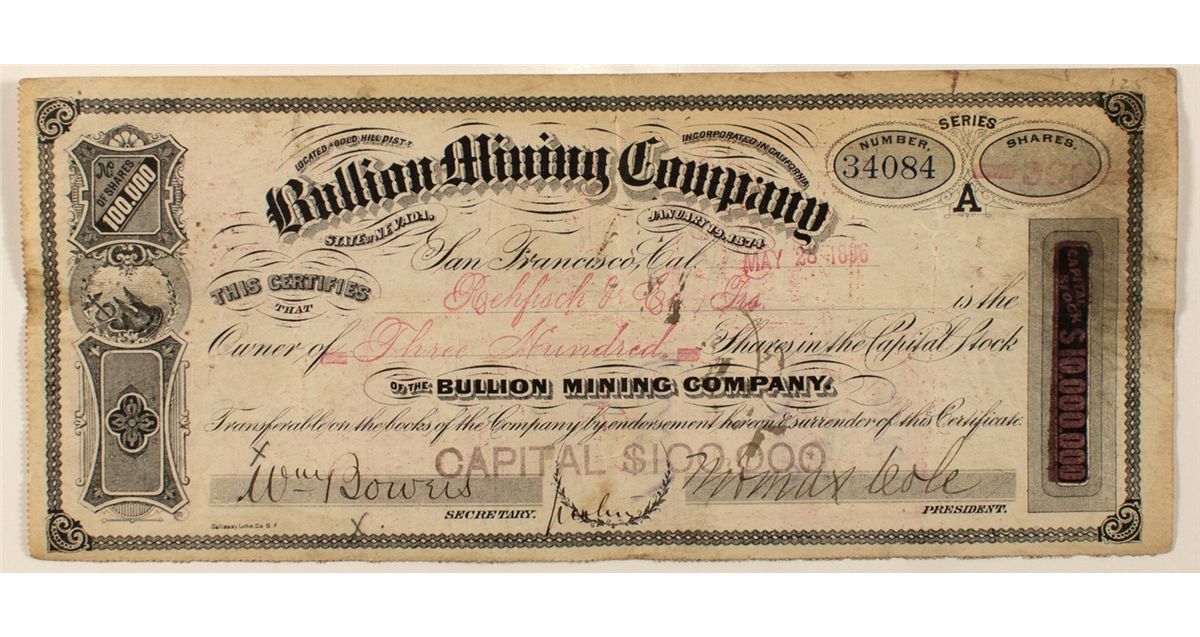 No
OF SHARES
100,000
LOCATED GOLD HILL DIST.
INCORPORATED IN CALIFORNIA
Bullion Mining Company
STATE OF NEVADA.
JANUARY 19, 1874
SERIES
NUMBER.
34084
A
SHARES.
300
San Francisco, Cal. MAY 28 1896
THIS CERTIFIES
THAT
Rehfisch & Co., Trs is the
Owner of Three Hundred Shares in the Capital Stock
OF THE BULLION MINING COMPANY.
Transferable on the books of the Company by endorsement hereon & surrender of this Certificate.
CAPITAL $100,000
X
Wm Bowers
SECRETARY.
Thomas Cole
PRESIDENT.
X
Galloway Litho. Co. S. F.
CAPITAL STOCK $10,000,000